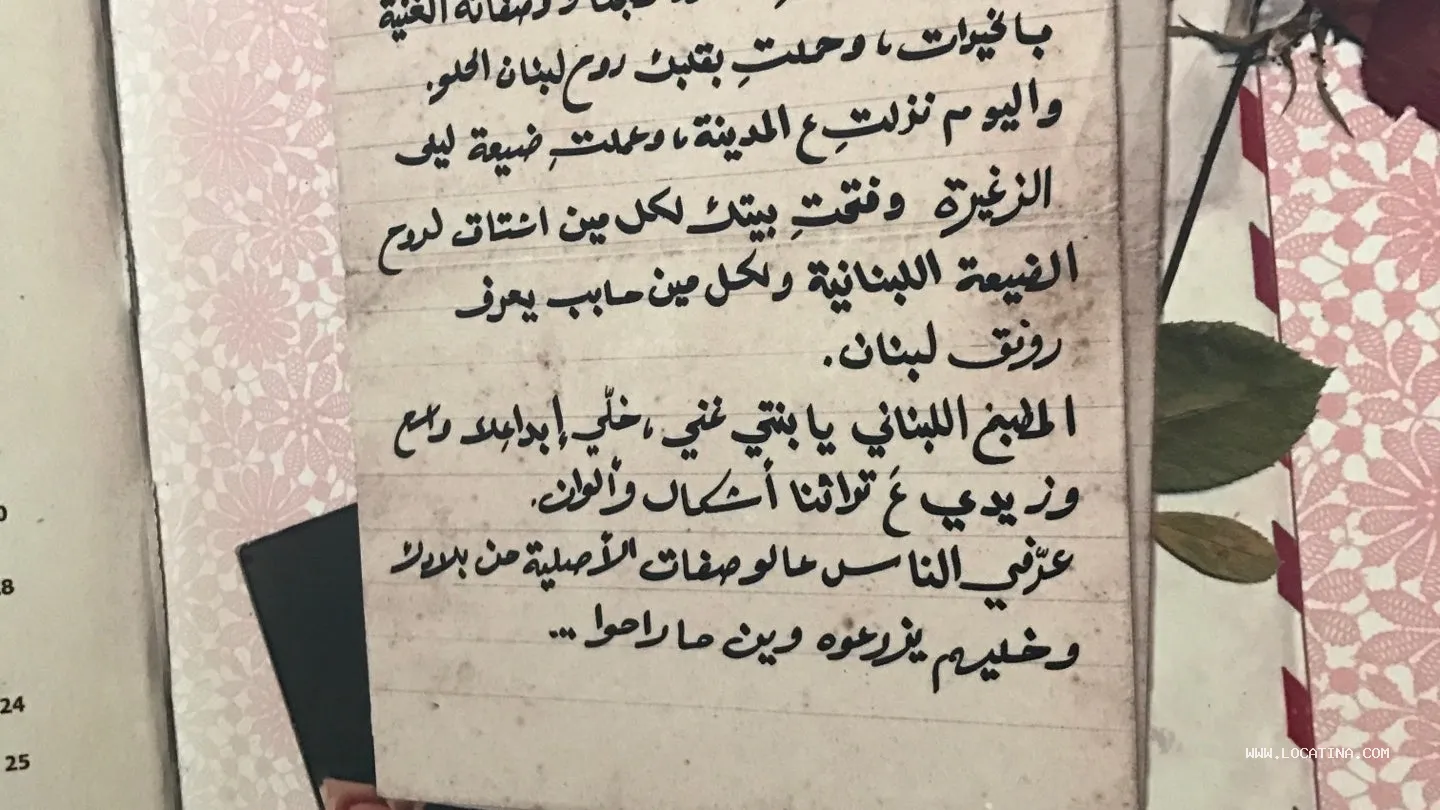 ووصفاته الغنية
بالخيرات، وحملتِ بقلبك روح لبنان الحلو.
واليوم نزلتِ ع المدينة، وعملتِ ضيعة ليلى
الزغيرة وفتحتِ بيتك لكل مين اشتاق لروح
الضيعة اللبنانية ولكل مين حابب يعرف
رونق لبنان.
المطبخ اللبناني يا بنتي غني، خلّي إبداعك واسع
وزيدي عَ تراثنا أشكال وألوان.
عرّفي الناس عالوصفات الأصلية من بلادك
وخليهم يزرعوه وين ما راحوا ...
0
18
24
25
WWW.LOCATINA.COM